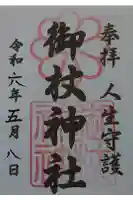 奉拝
人生守護
御杖神社
令和六年五月八日